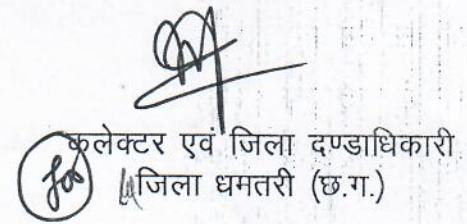 कलेक्टर एवं जिला दण्डाधिकारी
जिला धमतरी (छ.ग.)